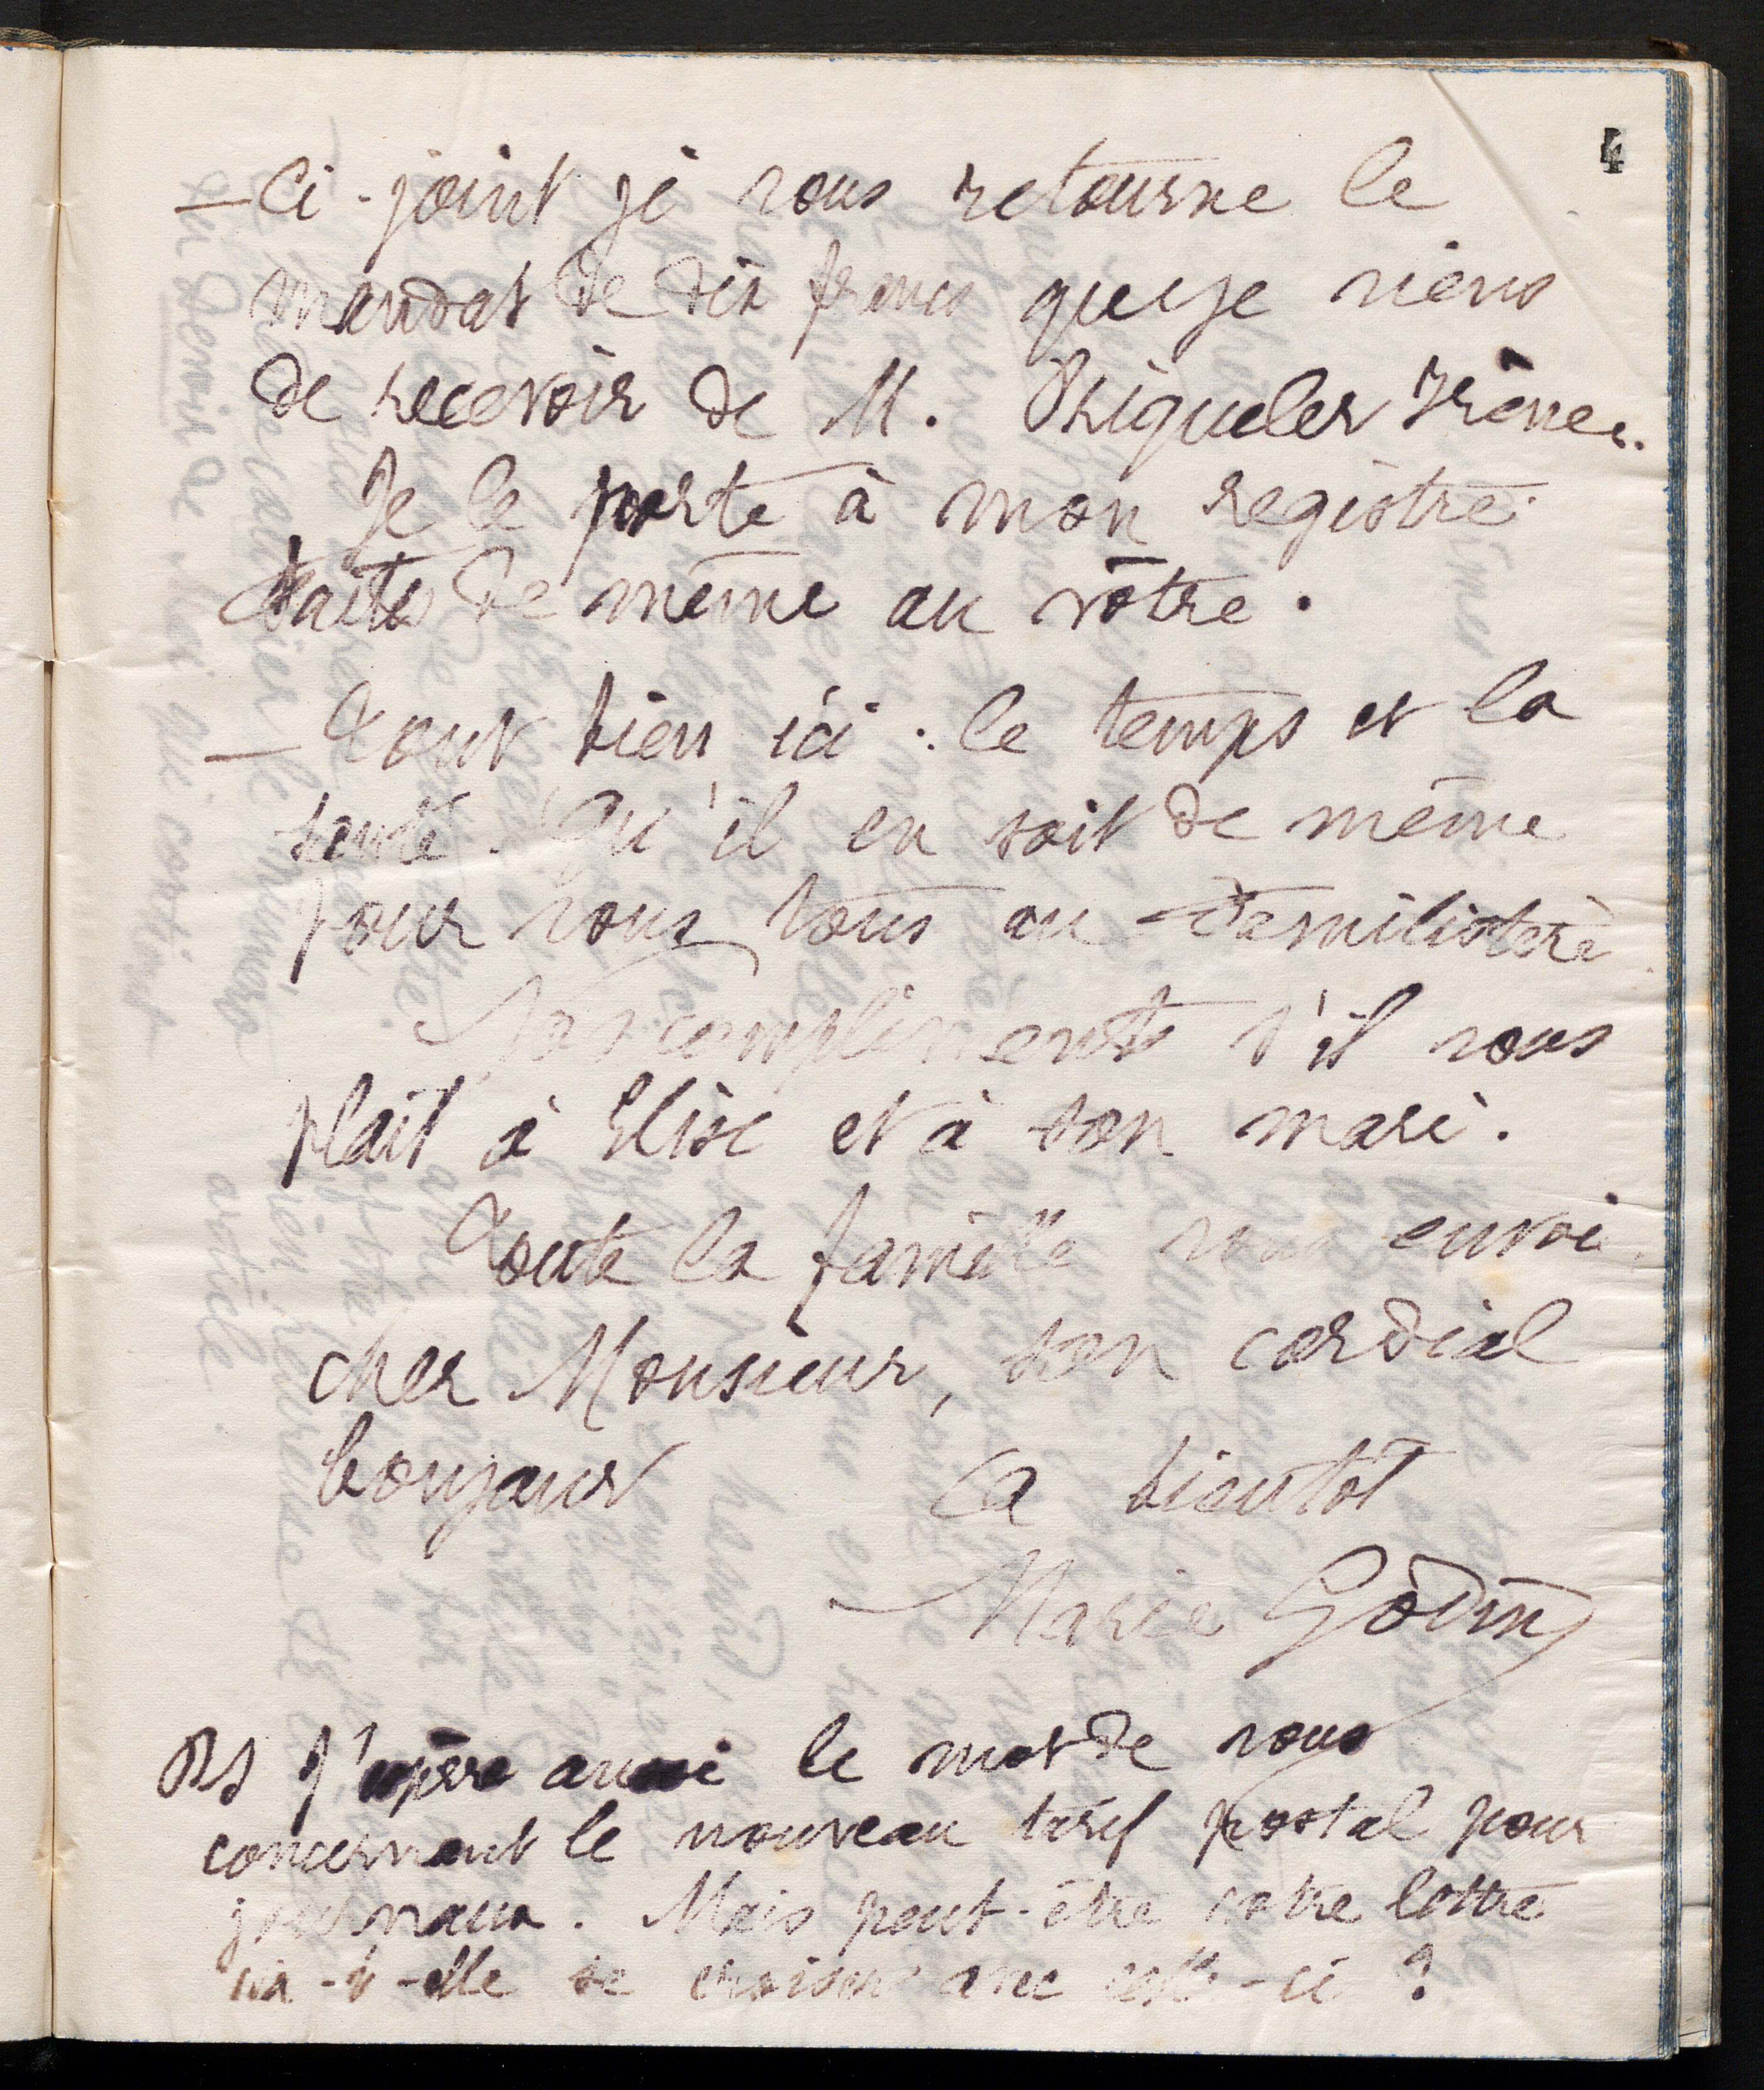 4
— Ci-joint je vous retourne le
mandat de dix francs que je viens
de recevoir de M. Irénée.
Je le porte à mon registre.
Faites de même au vôtre.
— Tout bien ici : le temps et la
santé. Qu'il en soit de même
pour vous tous au Familistère
Nos compliments s'il vous
plaît à Elise et à son mari.
Toute la famille vous envoie
cher Monsieur, son cordial
bonjour
À bientôt
Marie Godin
PS J'espère aussi le mot de vous
concernant le nouveau tarif postal pour
journaux. Mais peut-être votre lettre
va-t-elle se croiser avec celle-ci ?